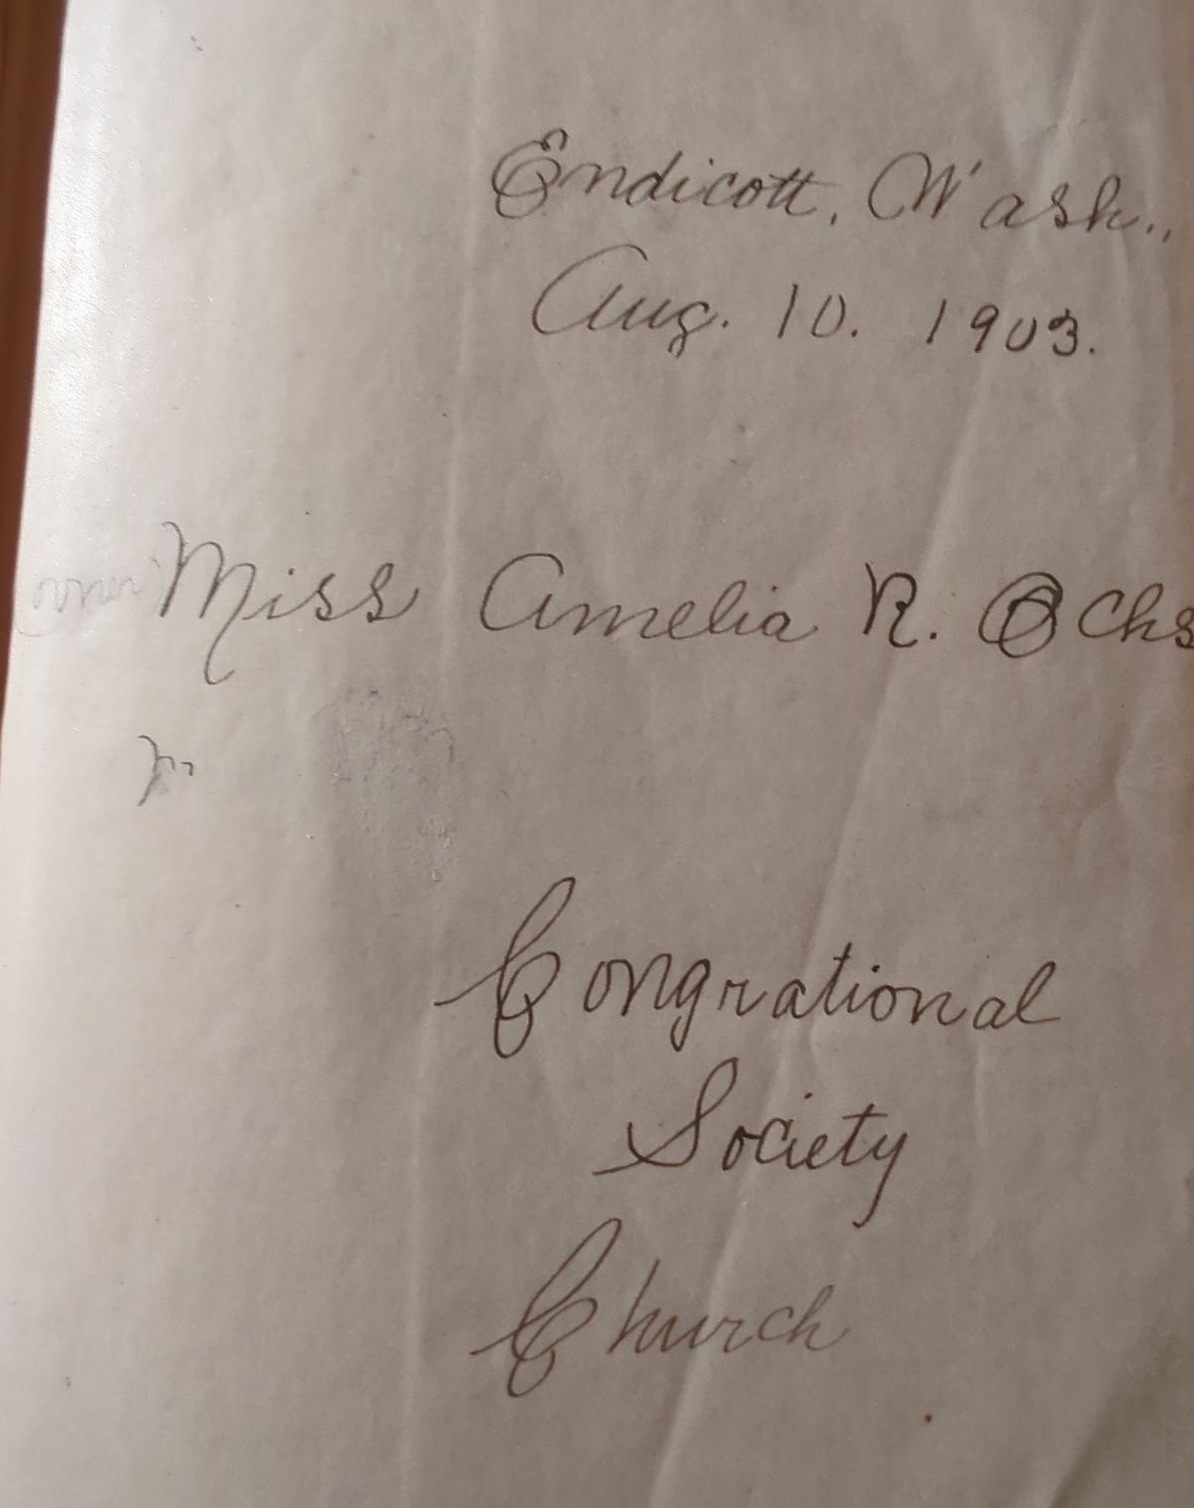 Endicott, Wash.,
Aug. 10. 1903.
Miss Amelia R. Ochs
Congrational
Society
Church